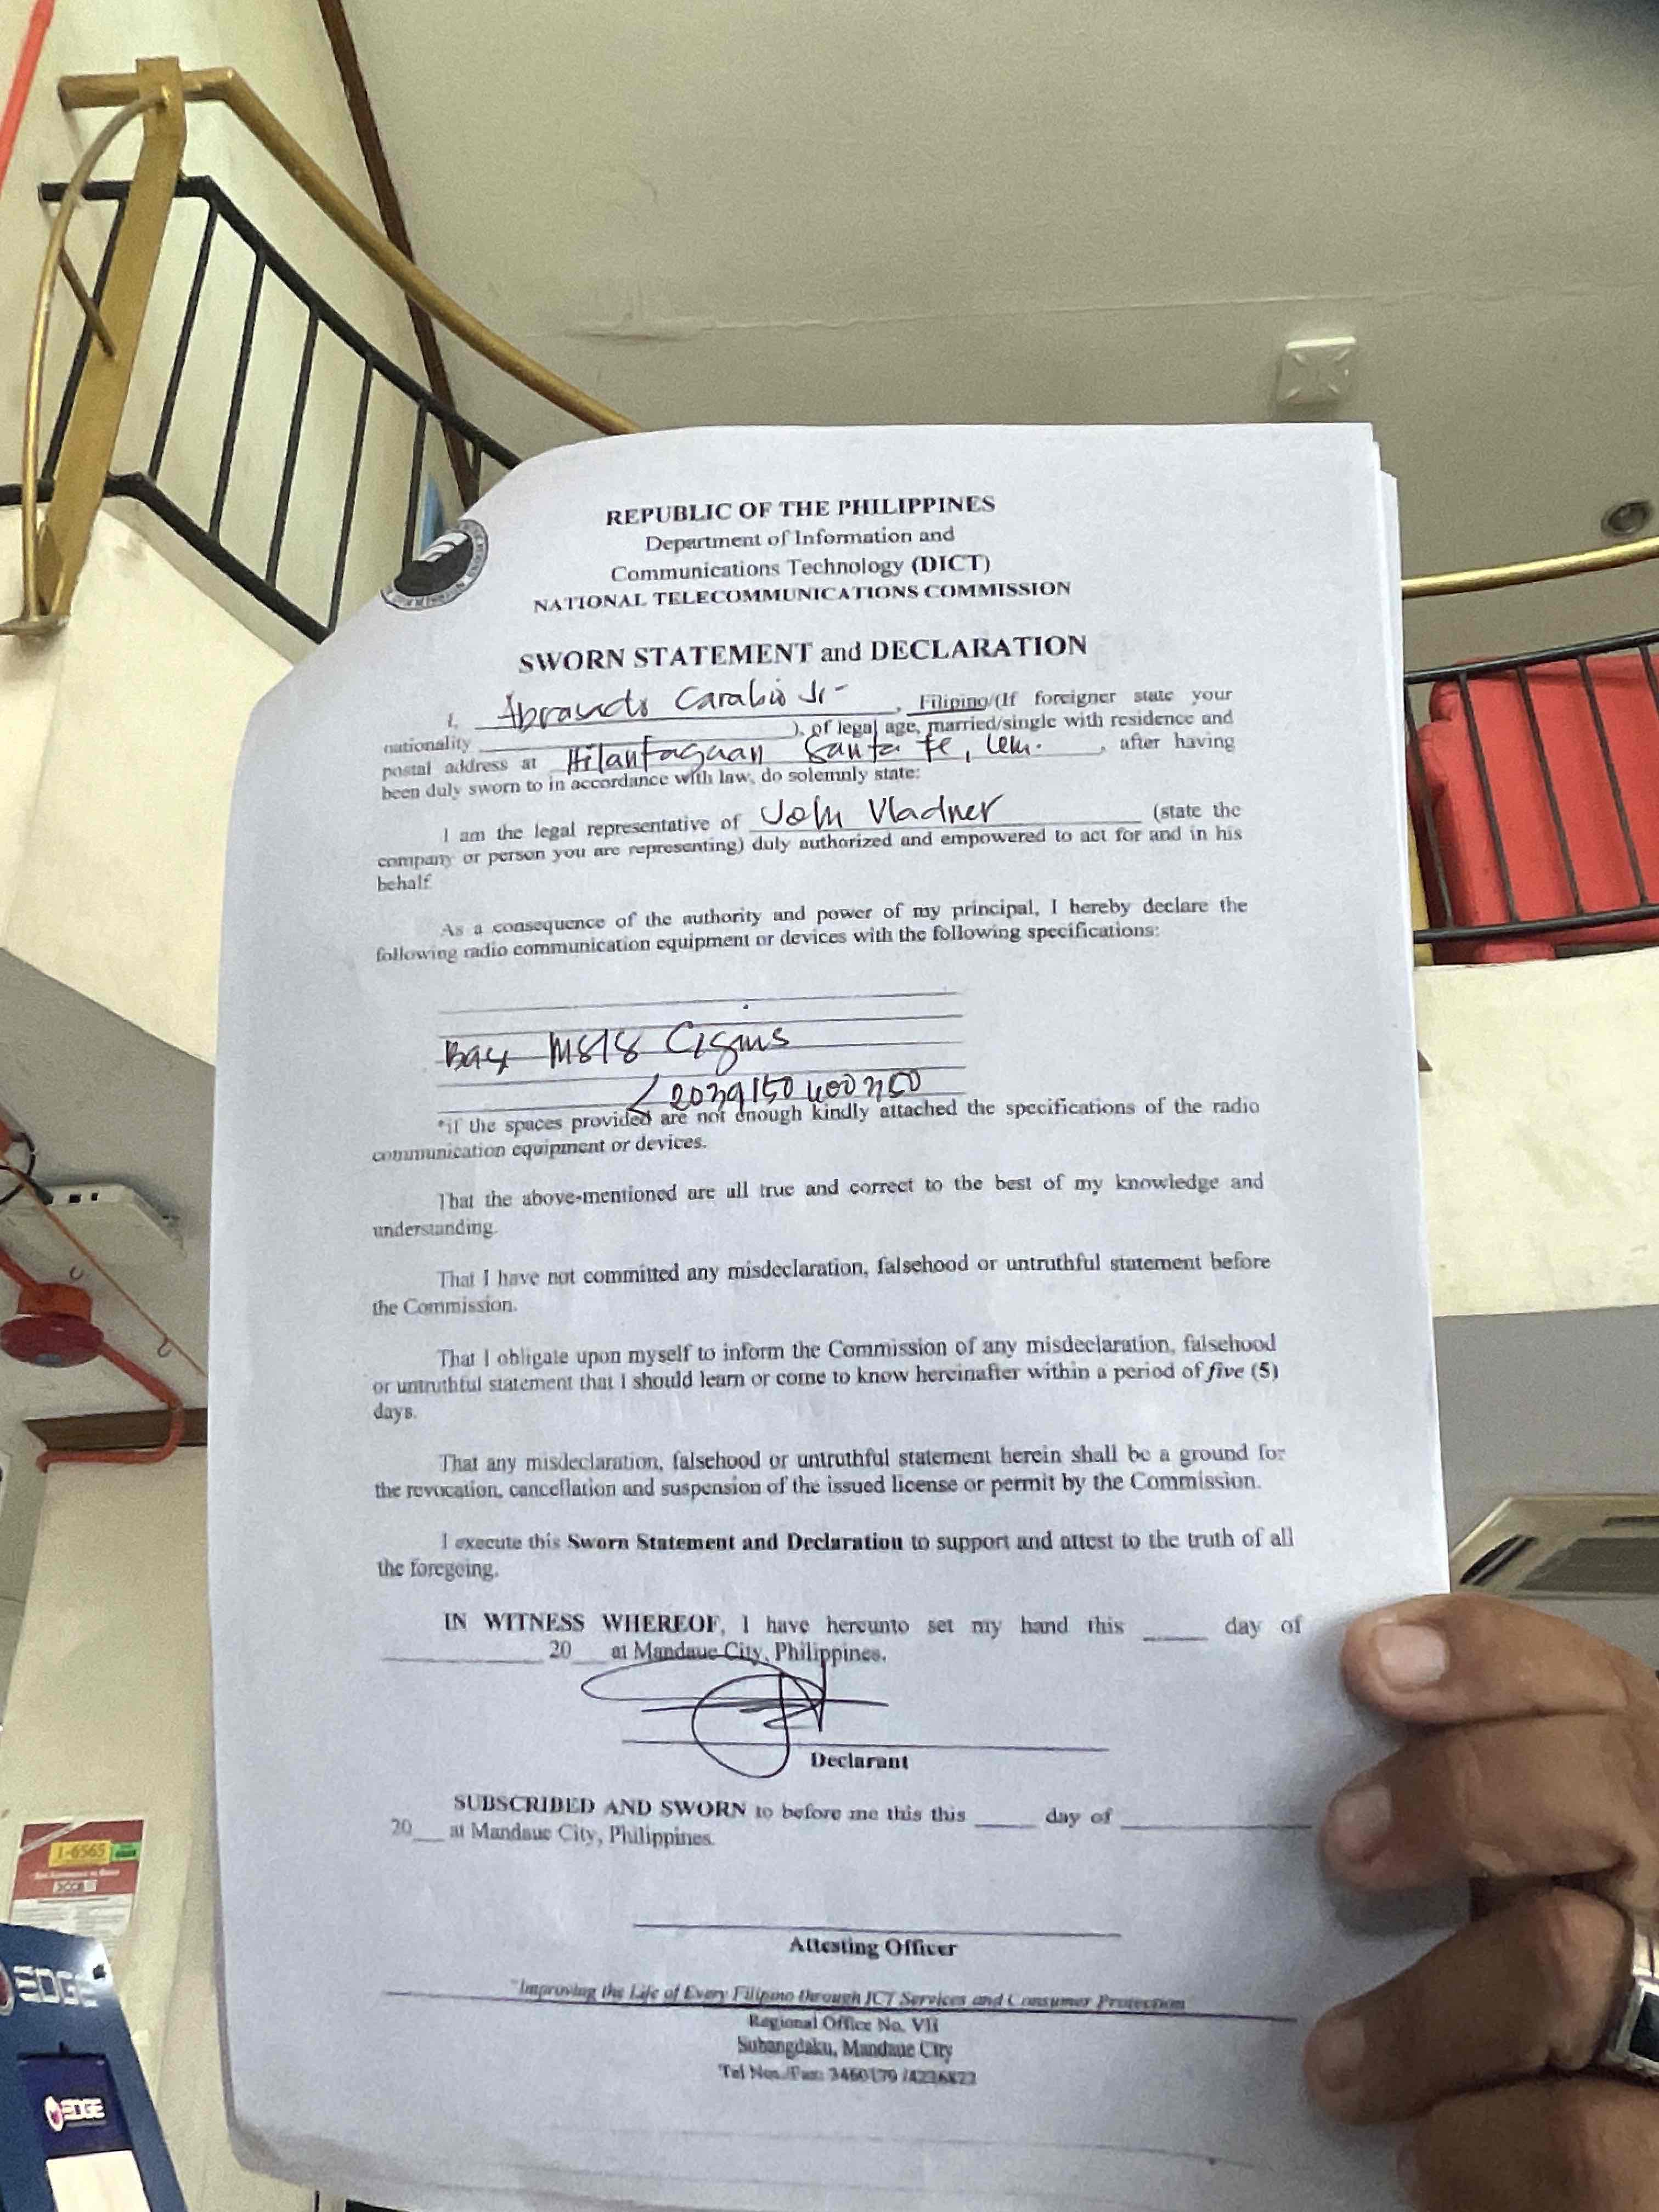 REPUBLIC OF THE PHILIPPINES
Department of Information and
Communications Technology (DICT)
NATIONAL TELECOMMUNICATIONS COMMISSION
SWORN STATEMENT and DECLARATION
I, Carabio Jr , Filipino/(If foreigner state your
nationality ), of legal age, married/single with residence and
postal address at Santa Fe, , after having
been duly sworn to in accordance with law, do solemnly state:
I am the legal representative of John Vladner (state the
company or person you are representing) duly authorized and empowered to act for and in his
behalf
As a consequence of the authority and power of my principal, I hereby declare the
following radio communication equipment or devices with the following specifications:
*if the spaces provided are not enough kindly attached the specifications of the radio
communication equipment or devices.
That the above-mentioned are all true and correct to the best of my knowledge and
understanding.
That I have not committed any misdeclaration, falsehood or untruthful statement before
the Commission.
That I obligate upon myself to inform the Commission of any misdeclaration, falsehood
or untruthful statement that I should learn or come to know hereinafter within a period of five (5)
days.
That any misdeclaration, falsehood or untruthful statement herein shall be a ground for
the revocation, cancellation and suspension of the issued license or permit by the Commission.
I execute this Sworn Statement and Declaration to support and attest to the truth of all
the foregoing.
IN WITNESS WHEREOF, I have hereunto set my hand this _____ day of
_____________ 20___ at Mandaue City, Philippines.
Declarant
SUBSCRIBED AND SWORN to before me this this _____ day of _______________
20___ at Mandaue City, Philippines.
Attesting Officer
"Improving the Life of Every Filipino through ICT Services and Consumer Protection
Regional Office No. VII
Subangdaku, Mandaue City
Tel Nos./Fax: 3460179 /4226822
1-6565
EDGE
EDGE